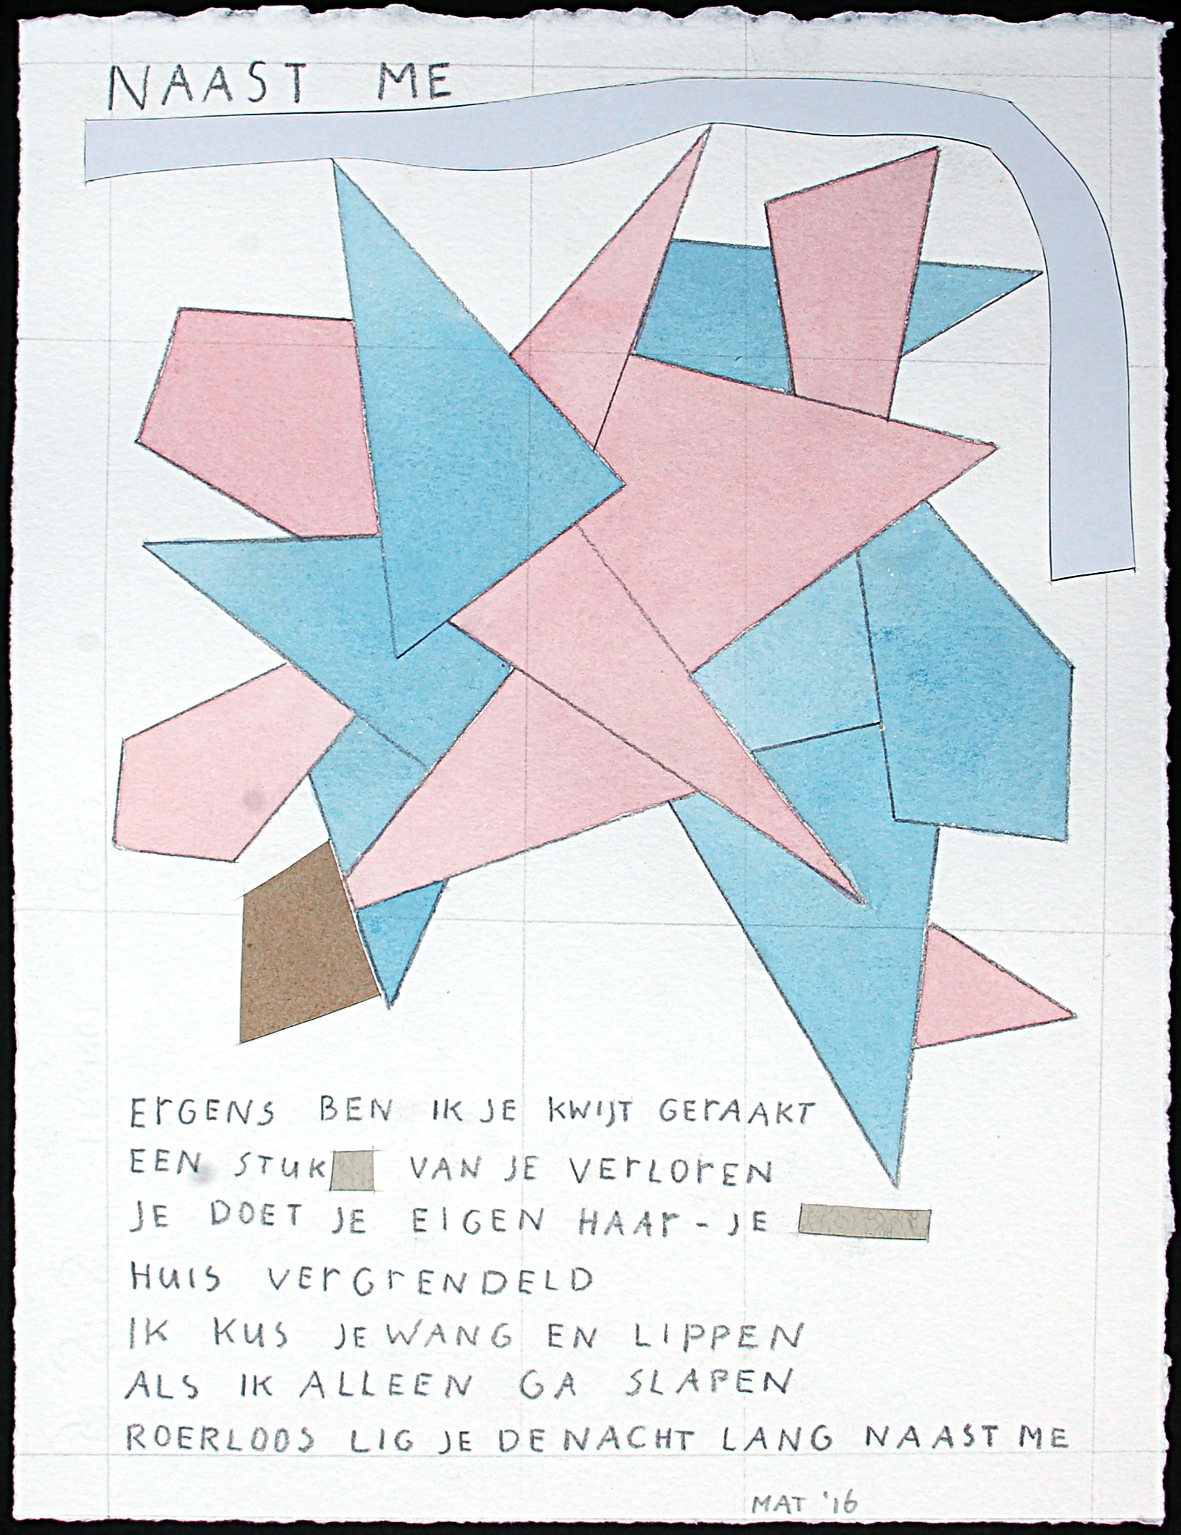 NAAST ME
ErGENS BEN IK JE KWIJT GErAAKT
EEN STUK VAN JE VErLOrEN
JE DOET JE EIGEN HAAr-JE
HUIS VErGrENDELD
IK KUS JE WANG EN LIPPEN
ALS IK ALLEEN GA SLAPEN
ROERLOOS LIG JE DE NACHT LANG NAAST ME
MAT '16